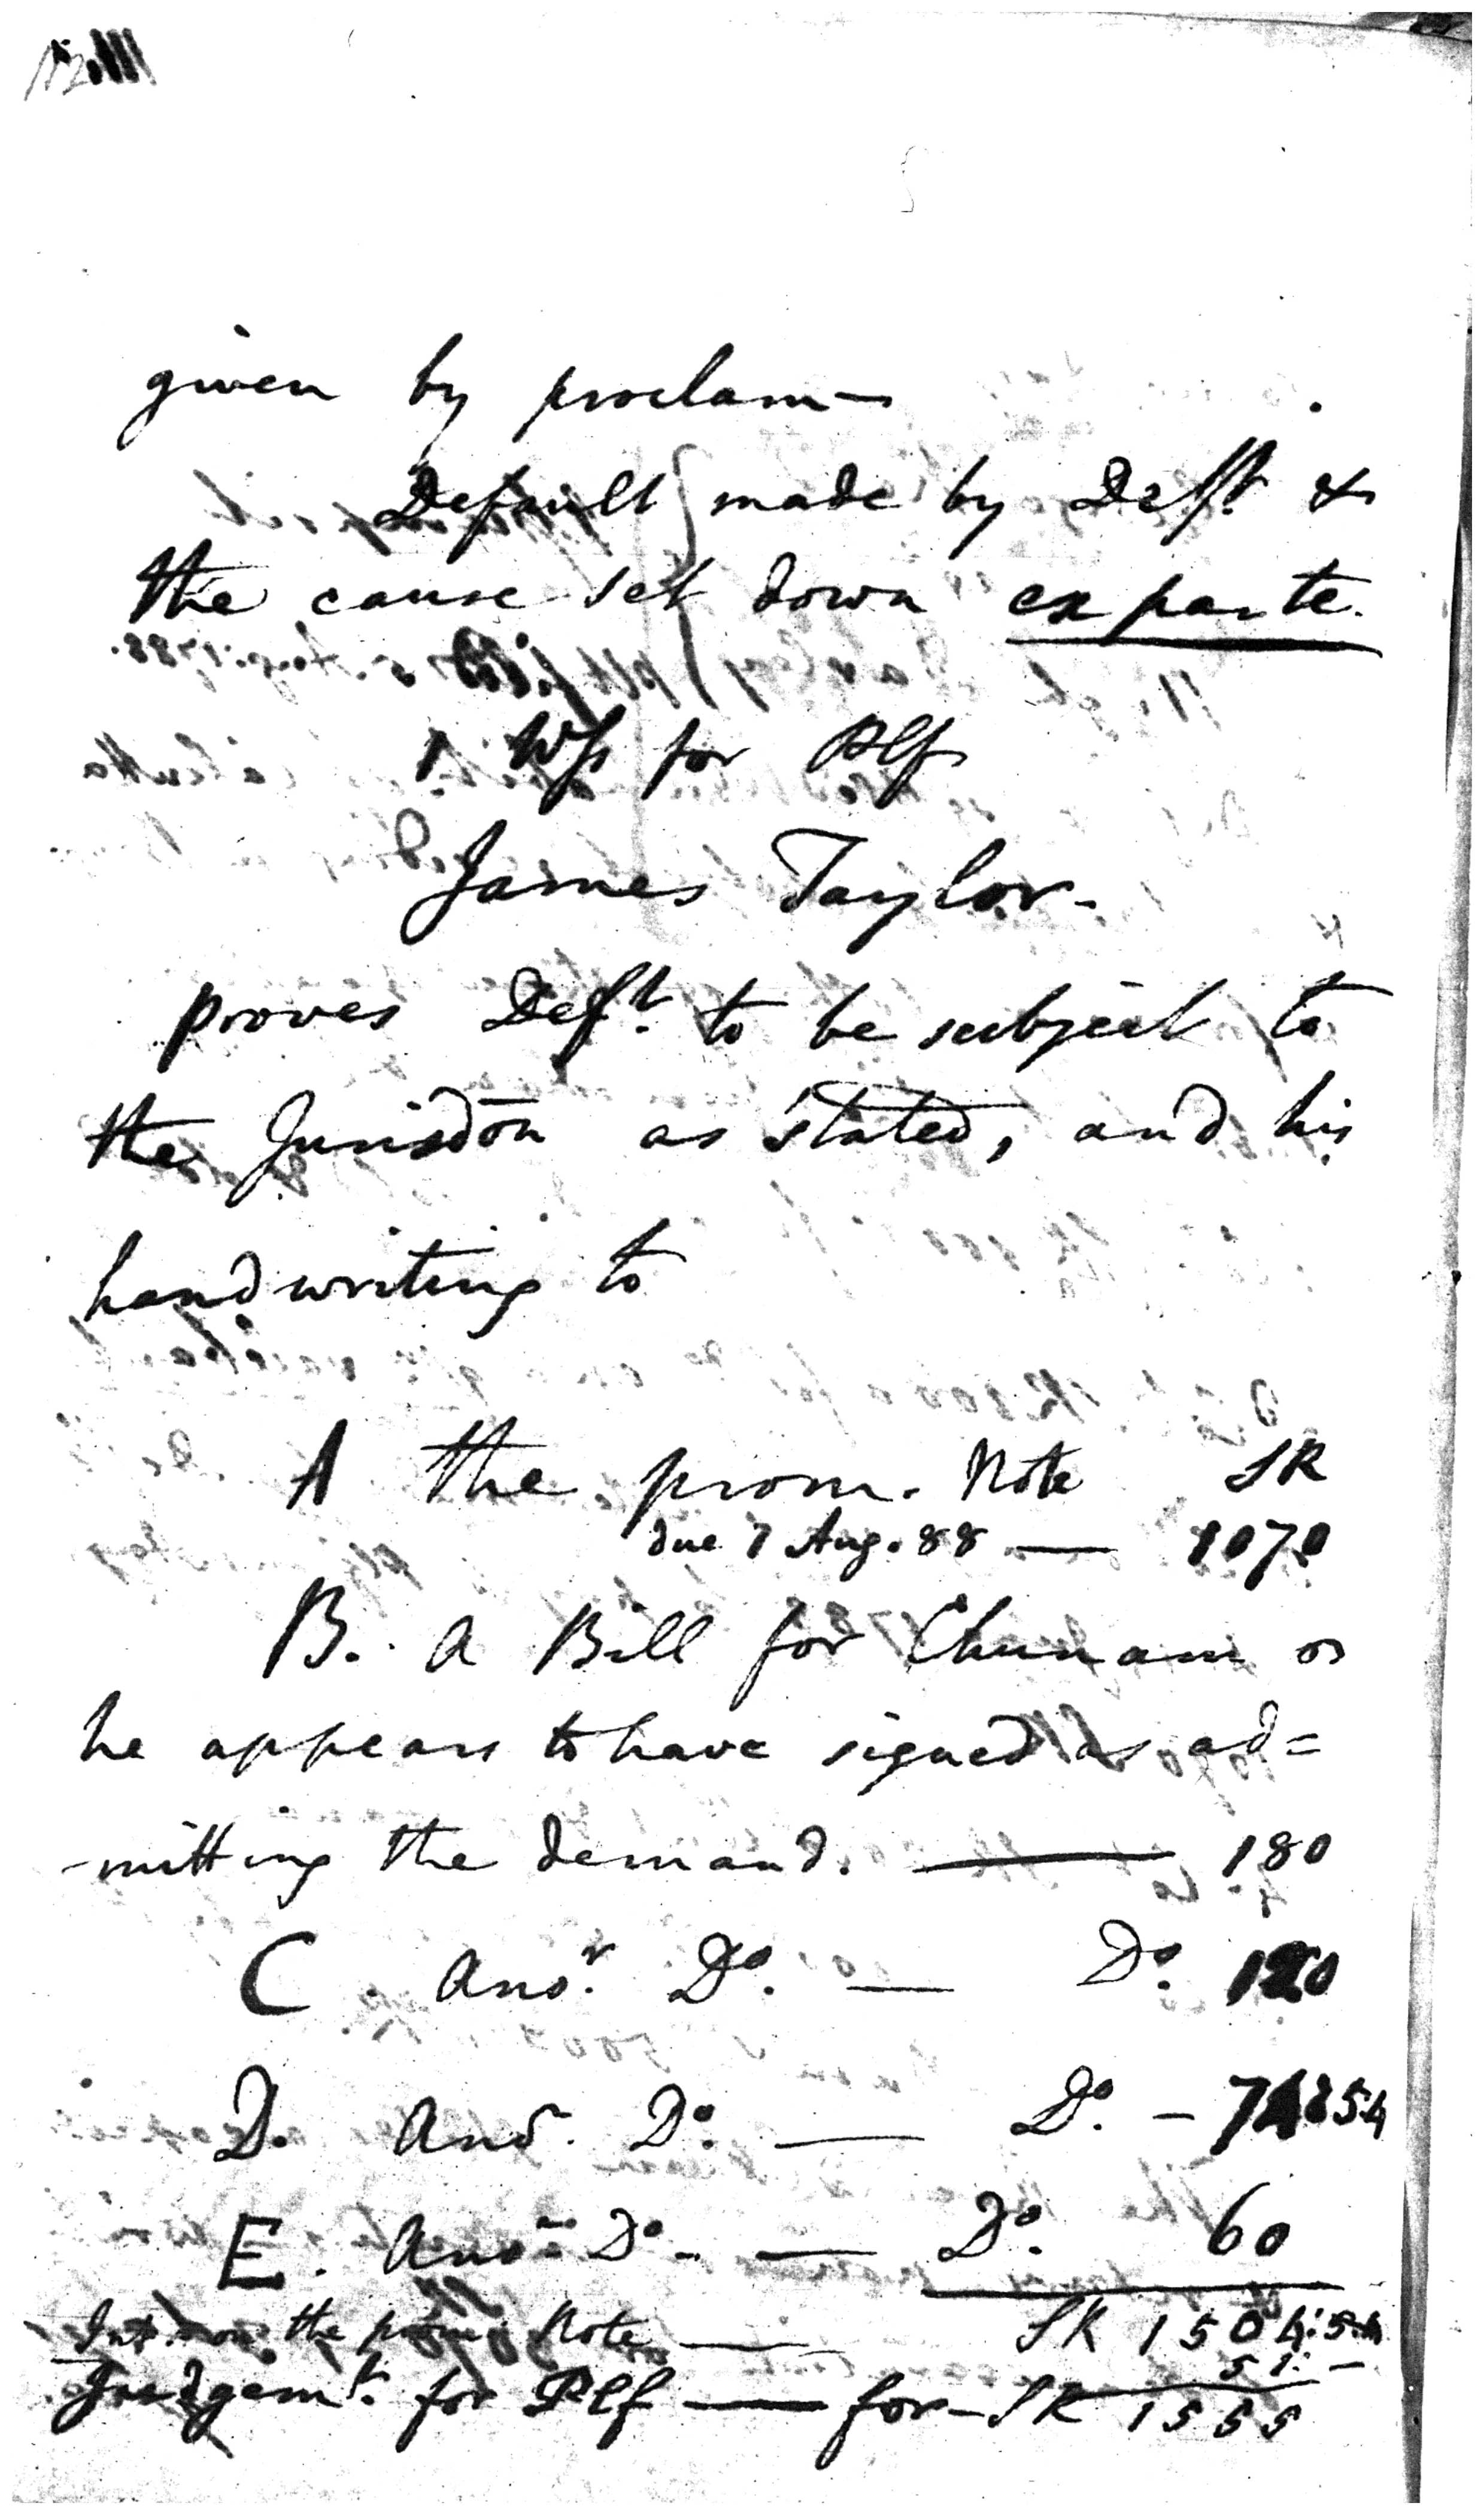 given by proclam—
Default made by Deft. &
the cause set down ex parte.
1 Wss for Plf
James Taylor.
proves Deft. to be subject to
the Jurisdon as stated, and his
handwriting to
A the prom. Note SR
due 7 Aug. 88 — 1070
B. a Bill for Chunam or
he appears to have signed as ad=
-mitting the demand. — 180
C. Anor. Do. — Do. 120
D. Anor. Do. — Do. – 74:5:4
E. Anor. Do. — Do. 60
Int. on the prom. Note — SR 1504:5:4
51: –
Judgemt. for Plf — for – SR 1555